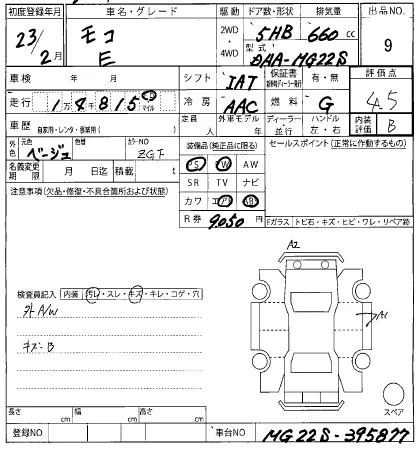 初度登録年月 車名・グレード 駆動 ドア数・形状 排気量 出品NO
23/2月 モコ E 2WD・4WD 5HB 660cc 9
型式 DAA-MG22S
車検 年 月 シフト IAT 保証書 有・無 評価点
走行 1万4815 km マイル 冷房 AAC 燃料 G 4.5
車歴 自家用・レンタ・事業用( ) 定員 人 外車モデル 年 ディーラー・並行 ハンドル 左・右 内装評価 B
外色 元色 ベージュ 色替 カラーNO ZGT 装備品(純正品に限る) セールスポイント(正常に作動するもの)
名義変更期限 月 日迄 積載 t PS PW AW
SR TV ナビ
注意事項(欠品・修復・不具合箇所および状態) カワ エアB ABS
R券 9050 Fガラス トビ石・キズ・ヒビ・ワレ・リペア跡
A2
A1
検査員記入 内装 汚レ・スレ・キズ・キレ・コゲ・穴
外A/W
キズ-B
スペア
長さ cm 幅 cm 高さ cm
登録NO 車台NO MG22S-395877